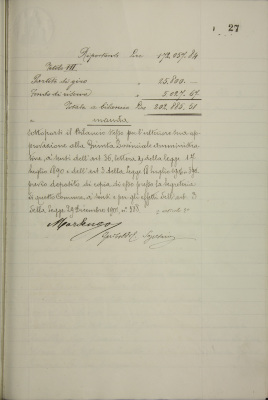 27
Riportonsi Lire 172,057.84
Titolo VII.
Partite di giro " 25,800.—
Fondo di riserva " 5,027.67
Totale a bilancio Lire 202,885.51
manda
sottoporsi il Bilancio stesso per l'ulteriore sua ap-
provazione alla Giunta Provinciale amministra-
tiva, ai sensi dell'art 36, lettera della legge 17
luglio 1890 e dell'art 3 della Legge 18 luglio 1904
previo deposito di copia di esso presso la Segreteria
di questo Comune, ai sensi e per gli effetti dell'art. 3
della Legge 29 Dicembre 1901, n° 518.
Segretario